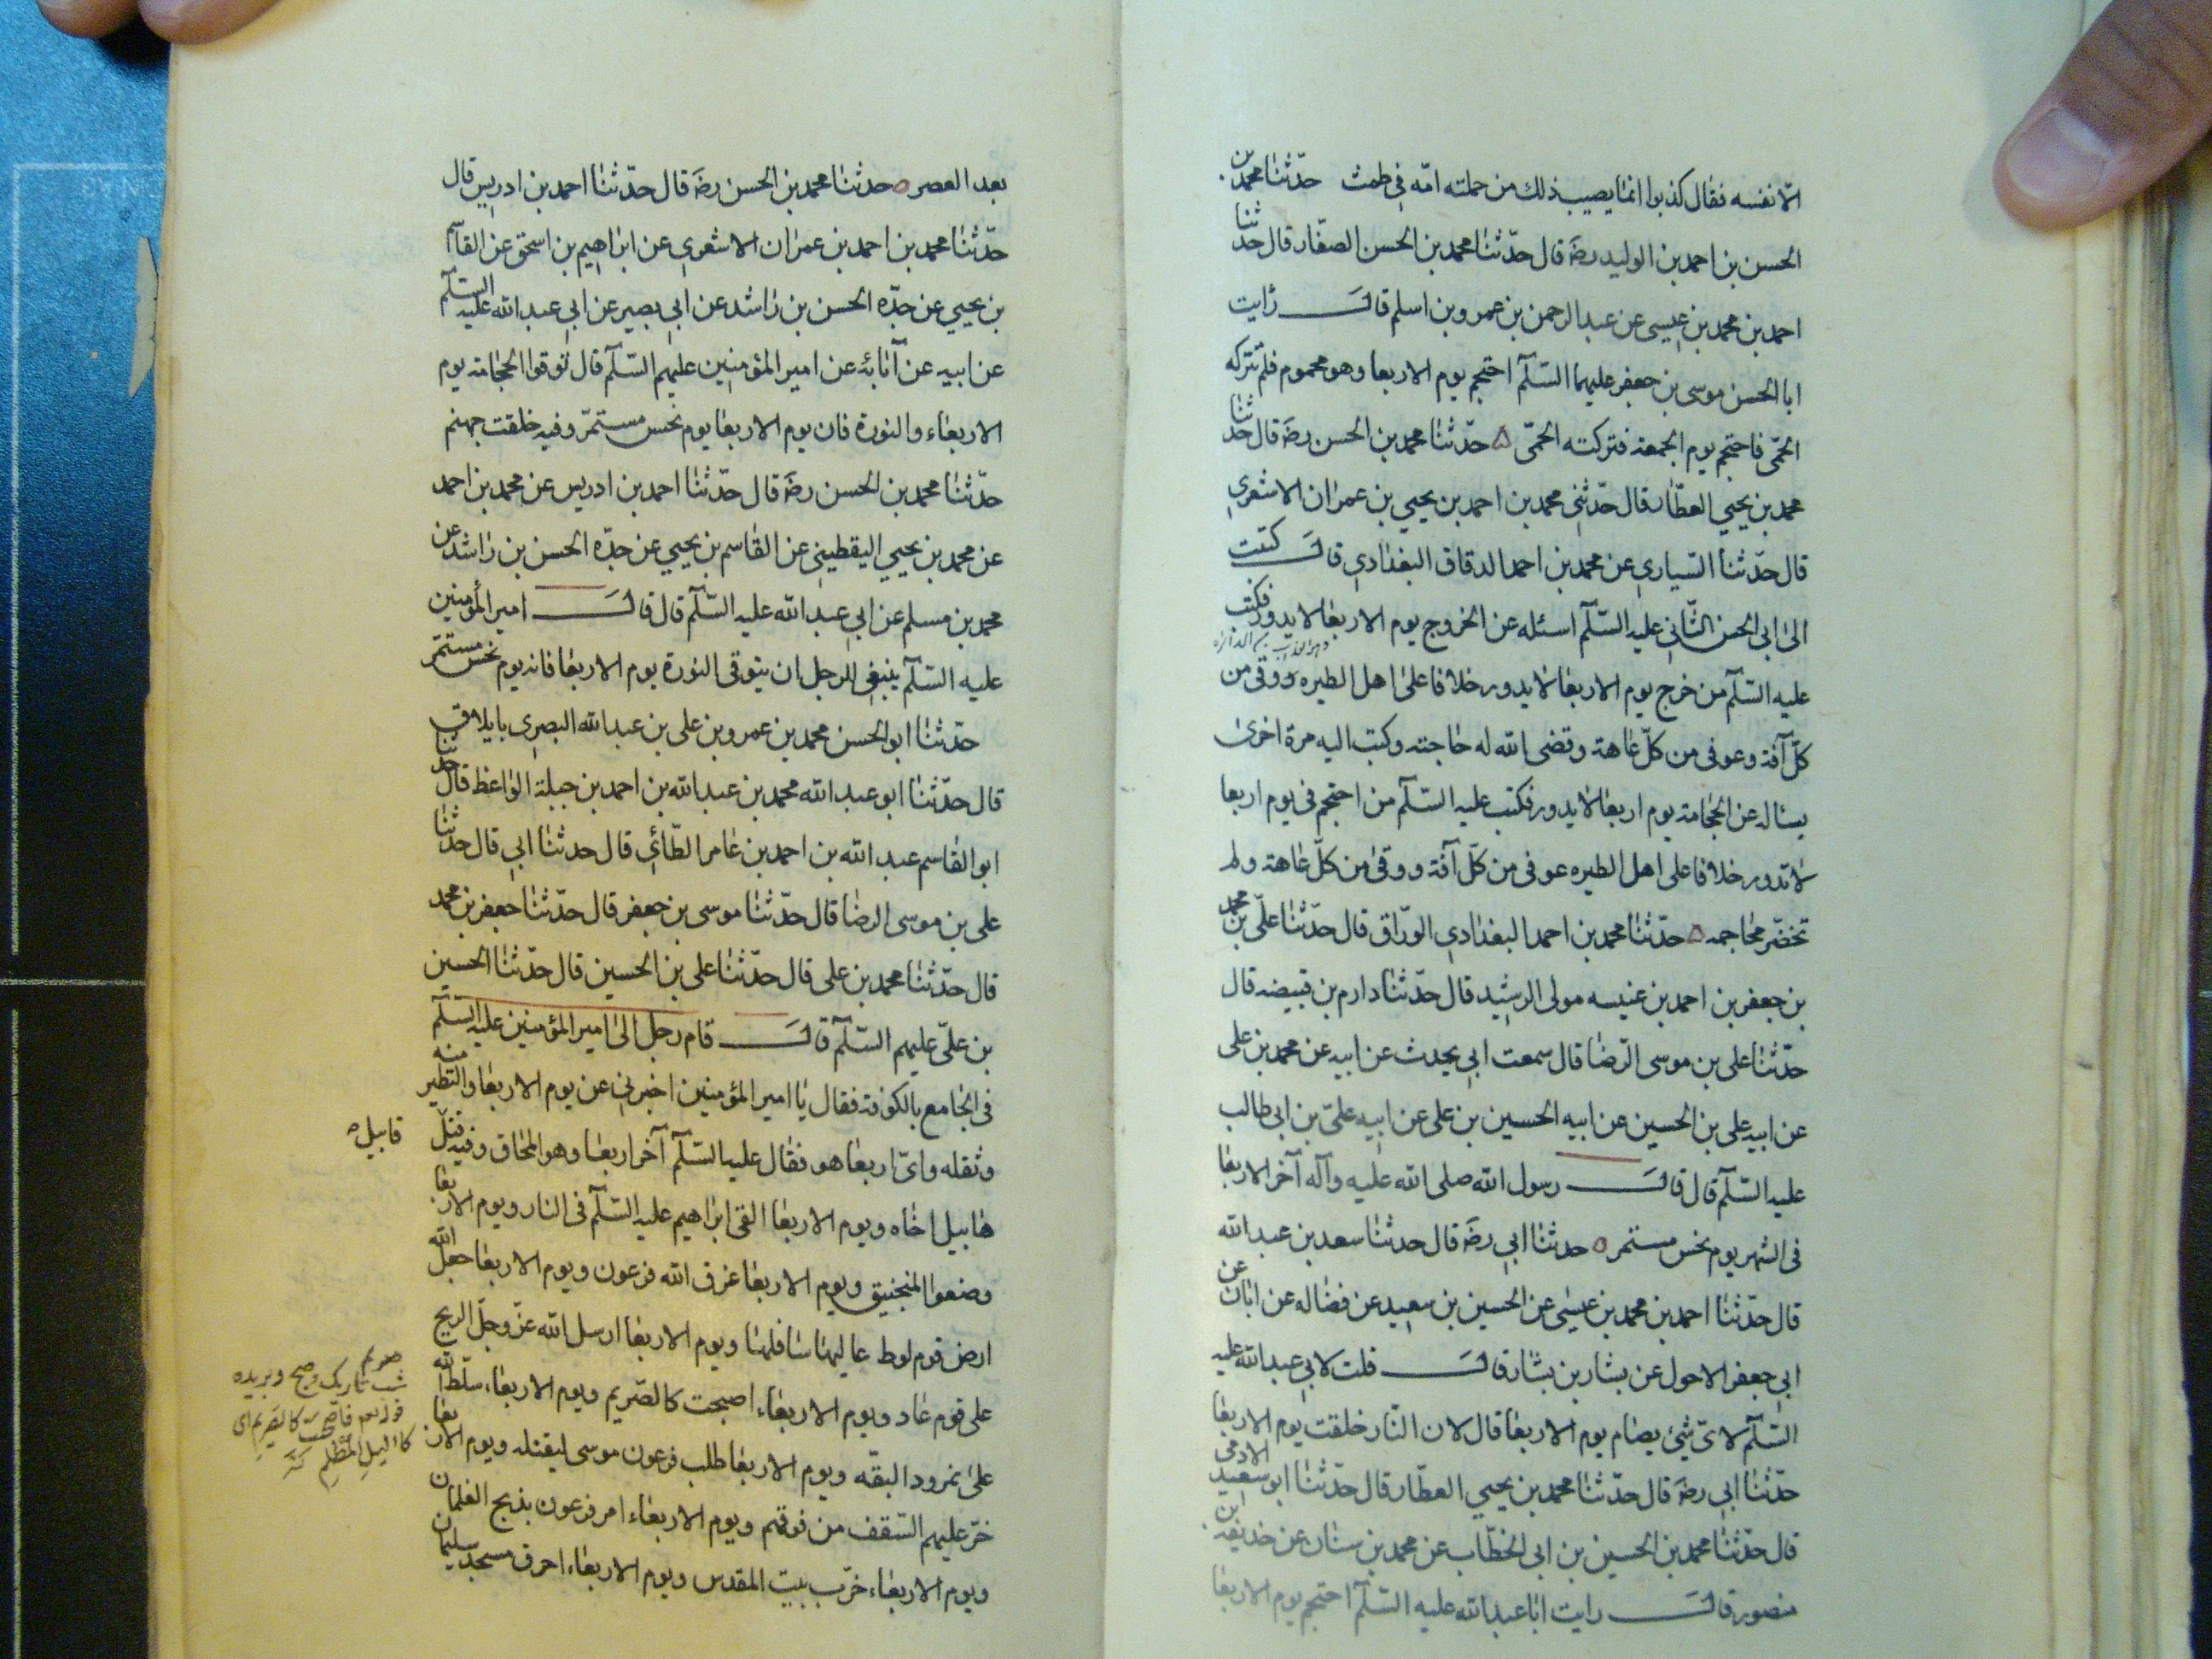 الّا نفسه فقال كذبوا انما يصيب ذلك من حملته امّه في طمث حدّثنا محمد بن
الحسن بن احمد بن الوليد رضَ قال حدّثنا محمد بن الحسن الصفّار قال حدثنا
احمد بن محمد بن عيسى عن عبد الرحمن بن عمرو بن اسلم قالَ رايت
ابا الحسن موسى بن جعفر عليهما السّلم احتجم يوم الاربعا وهو محموم فلم تتركه
الحمّى فاحتجم يوم الجمعة فتركته الحمّى ۵ حدّثنا محمد بن الحسن رضَ قال حدثنا
محمد بن يحيي العطّار قال حدّثني محمد بن احمد بن يحيي بن عمران الاشعري
قال حدّثنا السّياري عن محمد بن احمد الدقاق البغدادي قالَ كتبت
الى ابى الحسن الثّاني عليه السّلم اسئله عن الخروج يوم الاربعا لا يدور فكتب
عليه السّلم من خرج يوم الاربعا لا يدور خلافا على اهل الطيره ووقى من
كلّ آفة وعوفى من كلّ عاهة وقضى الله له حاجته وكتب اليه مرة اخرى
يسئاله عن الحجامة يوم اربعا لا يدور فكتب عليه السّلم من احتجم فى يوم اربعا
لا تدور خلافا على اهل الطيره عوفى من كلّ آفة ووقى من كلّ عاهة ولم
تخضّر محاجمه ۵ حدّثنا محمد بن احمد البغدادي الورّاق قال حدّثنا علىّ بن محمد
بن جعفر بن احمد بن عنبسه مولى الرشيد قال حدّثنا دارم بن قبيضه قال
حدّثنا على بن موسى الرّضا قال سمعت ابي يحدث عن ابيه عن محمد بن على
عن ابيه على بن الحسين عن ابيه الحسين بن على عن ابيه علىّ بن ابى طالب
عليه السّلم قال قالَ رسول الله صلى الله عليه وآله آخر الاربعا
فى الشهر يوم نحس مستمر ٥ حدثنا ابي رضَ قال حدثنا سعد بن عبد الله
قال حدّثنا احمد بن محمد بن عيسى عن الحسين بن سعيد عن فضاله عن ابان عن
ابي جعفر الاحول عن بشار بن بشّار قالَ قلت لابي عبد الله عليه
السّلم لاىّ شئ يصام يوم الاربعا قال لان النّار خلقت يوم الاربعا
حدّثنا ابي رضَ قال حدّثنا محمد بن يحيي العطّار قال حدّثنا ابو سعيد الادمى
قال حدّثنا محمد بن الحسين بن ابى الخطّاب عن محمد بن سنان عن حذيفه ابن
منصور قالَ رايت ابا عبد الله عليه السّلم احتجم يوم الاربعا
بعد العصر ٥ حدثنا محمد بن الحسن رضَ قال حدّثنا احمد بن ادريس قال
حدّثنا محمد بن احمد بن عمران الاشعري عن ابراهيم بن اسحق عن القاسم
بن يحيي عن جدّه الحسن بن راشد عن ابي بصير عن ابي عبد الله عليه السّلم
عن ابيه عن آبائه عن امير المؤمنين عليهم السّلم قال توقوا الحجامة يوم
الاربعاء والنورة فان يوم الاربعا يوم نحس مستمرّ وفيه خلقت جهنم
حدّثنا محمد بن الحسن رضَ قال حدّثنا احمد بن ادريس عن محمد بن احمد
عن محمد بن يحيي اليقطيني عن القاسم بن يحيي عن جدّه الحسن بن راشد عن
محمد بن مسلم عن ابي عبد الله عليه السّلم قال قالَ امير المؤمنين
عليه السّلم ينبغي للرجل ان يتوقى النورة يوم الاربعا فانه يوم نحس مستمّر
حدّثنا ابو الحسن محمد بن عمرو بن على بن عبد الله البصرى بايلاق
قال حدّثنا ابو عبد الله محمد بن عبد الله بن احمد بن جبلة الواعظ قال حدثنا
ابو القاسم عبد الله بن احمد بن عامر الطّائي قال حدثنا ابي قال حدثنا
على بن موسى الرضا قال حدّثنا موسى بن جعفر قال حدّثنا جعفر بن محمد
قال حدّثنا محمد بن على قال حدّثنا على بن الحسين قال حدّثنا الحسين
بن علىّ عليهم السّلم قالَ قام رجل الى امير المؤمنين عليه السّلم
فى الجامع بالكوفة فقال يا امير المؤمنين اخبرني عن يوم الاربعا والتطير منه
وثقله واىّ اربعا هو فقال عليه السّلم آخر اربعا وهو المحاق وفيه قتل
قابيل ٥
هابيل اخاه ويوم الاربعا القى ابراهيم عليه السّلم فى النار ويوم الاربعا
وضعوا المنجنيق ويوم الاربعا غرق الله فرعون ويوم الاربعا جعل الله
ارض قوم لوط عاليها سافلها ويوم الاربعا ارسل الله عزّ وجلّ الريح
على قوم عاد ويوم الاربعاء اصبحت كالصّريم ويوم الاربعاء سلّط الله
على نمرود البقّه ويوم الاربعا طلب فرعون موسى ليقتله ويوم الاربعا
خرّ عليهم السّقف من فوقهم ويوم الاربعاء امر فرعون بذبح الغلمان
ويوم الاربعاء خرّب بيت المقدس ويوم الاربعاء احرق مسجد سليمان ابن
صريم
شب تاريك وصبح وبريده
فاصبحت كالصَّريم اى
كالليل المظلم